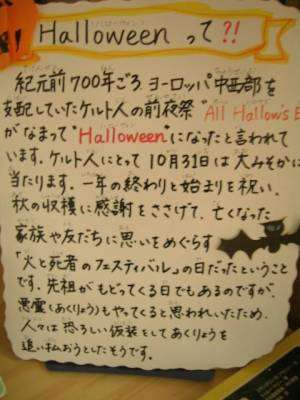 Halloweenって?!
紀元前700年ごろ ヨーロッパ中西部を
支配していたケルト人の前夜祭"All Hallow's E
がなまって"Halloween"になったと言われて
います。ケルト人にとって10月31日は大みそかに
当たります。一年の終わりと始まりを祝い、
秋の収穫に感謝をささげて、亡くなった
家族や友だちに思いをめぐらす
「火と死者のフェスティバル」の日だったということ
です。先祖がもどってくる日でもあるのですが、
悪霊(あくりょう)もやってくると思われいたため、
人々は恐ろしい仮装をしてあくりょうを
追い払おうとしたそうです。